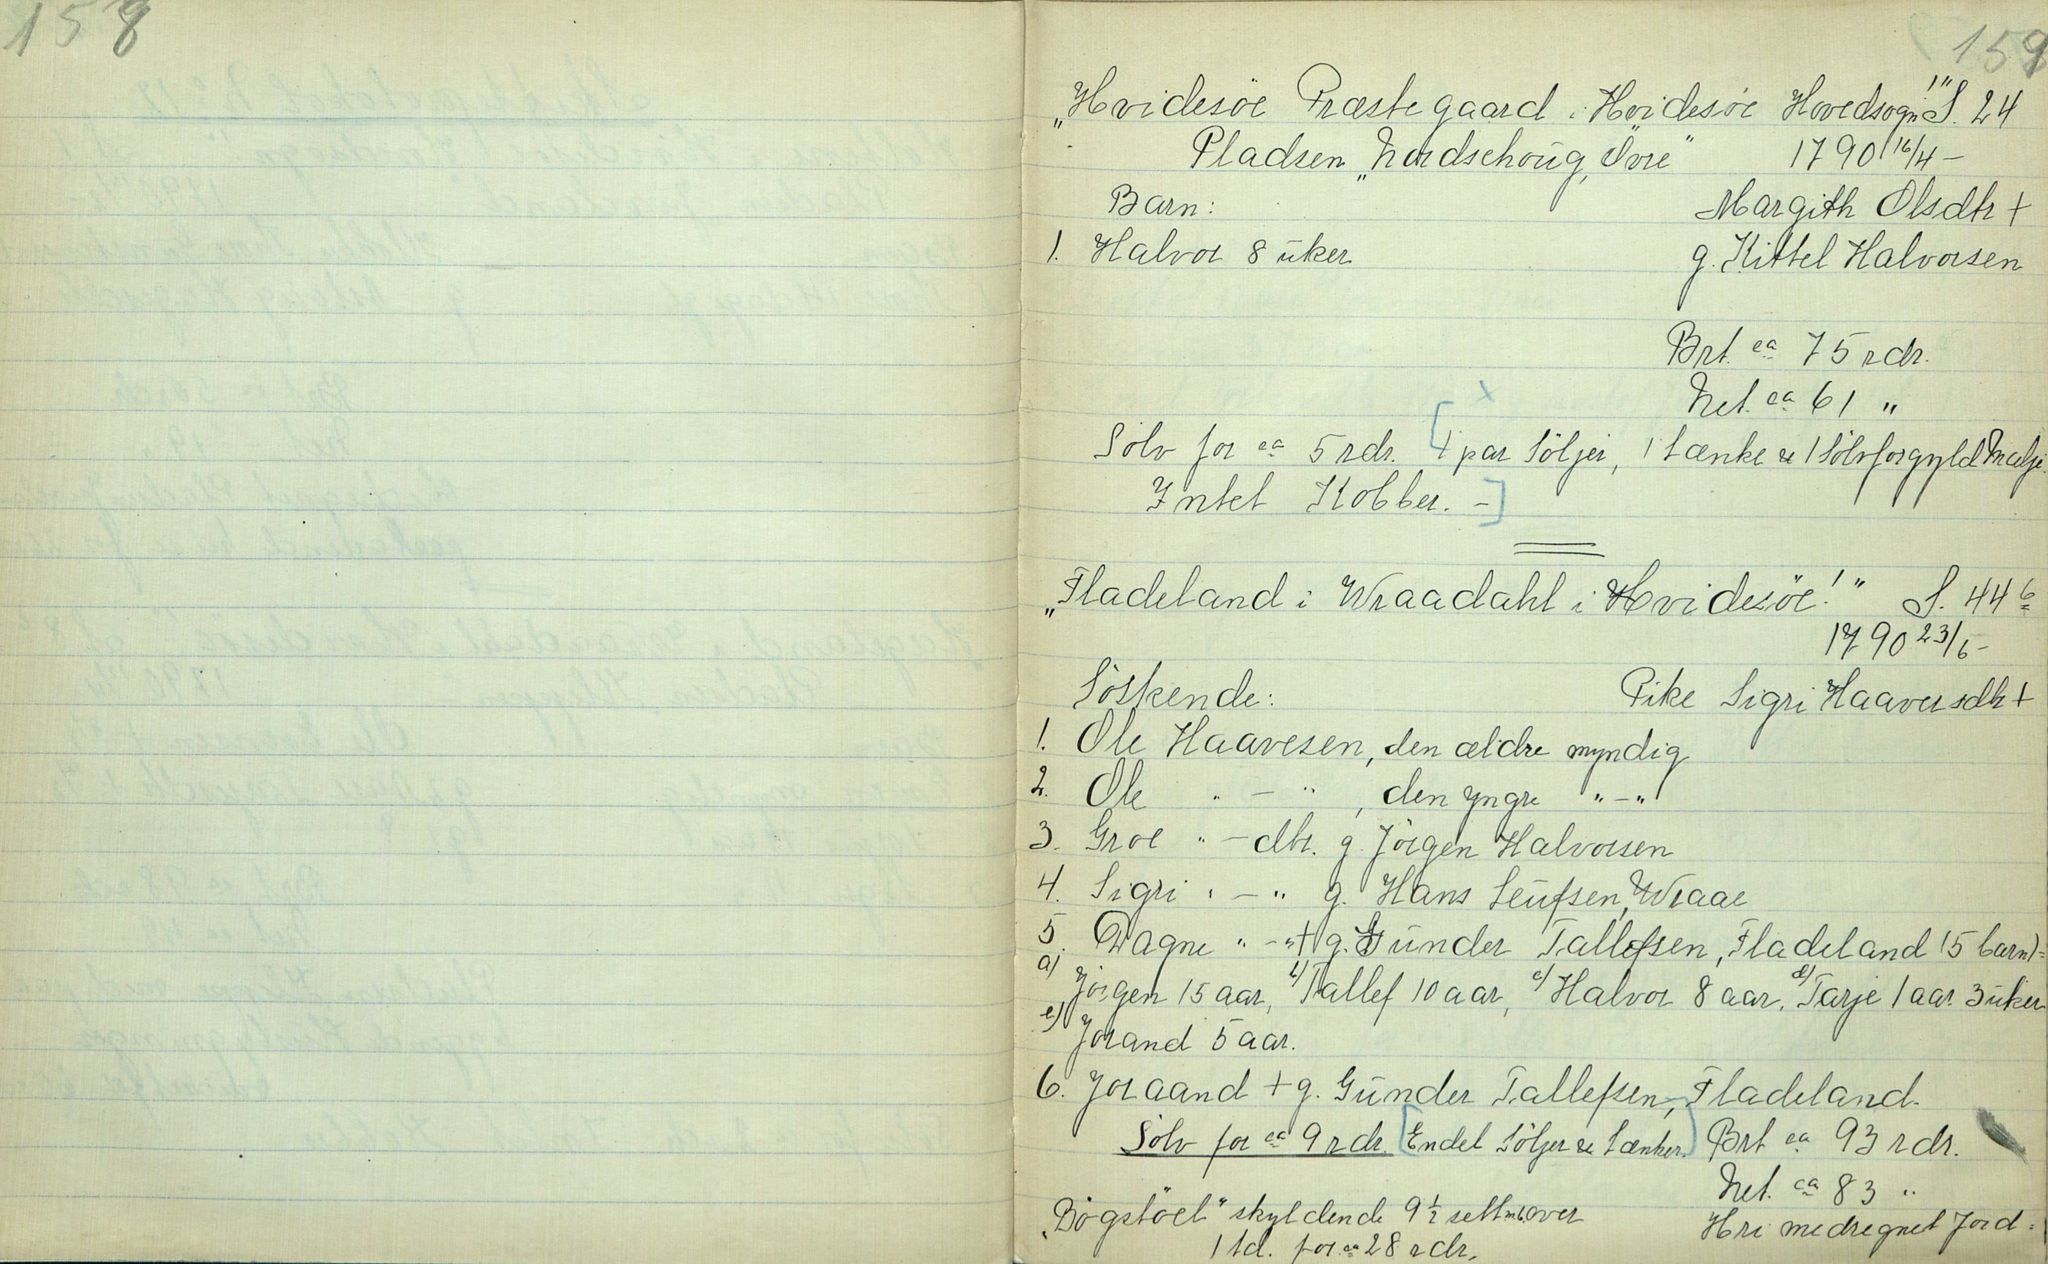 158
159
„Hvidesöe Præstegaard i Hvidesöe Hovedsogn!" S. 24
Pladsen „Nordschoug, Övre" 1790 16/4 –
Barn: Margith Olsdtr +
1. Halvor 8 uker g. Kittel Halvorsen
Brt. ca 75 rdr.
Net. ca 61 „
Sölv for ca 5 rdr. [4 par Söljer, 1 Lænke & 1 Sölvforgyld Malje.
Intet Kobber. –]
„Fladeland i Wraadahl i Hvidesöe!" S. 44 b
1790 23/6 –
Söskende: Pike Sigri Haaversdtr +
1. Ole Haavesen, den ældre myndig
2. Ole " – " , den yngre " – "
3. Groe " – dtr. g. Jörgen Halvorsen
4. Sigri " – " g. Hans Leufsen, Wraae
5. Dagne " – " + g. Gunder Tallefsen, Fladeland (5 barn) =
a) Jörgen 15 aar, b) Tallef 10 aar, c) Halvor 8 aar, d) Tarje 1 aar 3 uker
e) Jorand 5 aar.
6. Joraand + g. Gunder Tallefsen, Fladeland.
Sölv for ca 9 rdr. [Endel Söljer & Lænker.] Brt ca 93 rdr.
Net. ca 83 "
„Bögstöel" skyldende 9 1/2 settm over Hri medregnet Jord =
1 td. for ca 28 rdr.